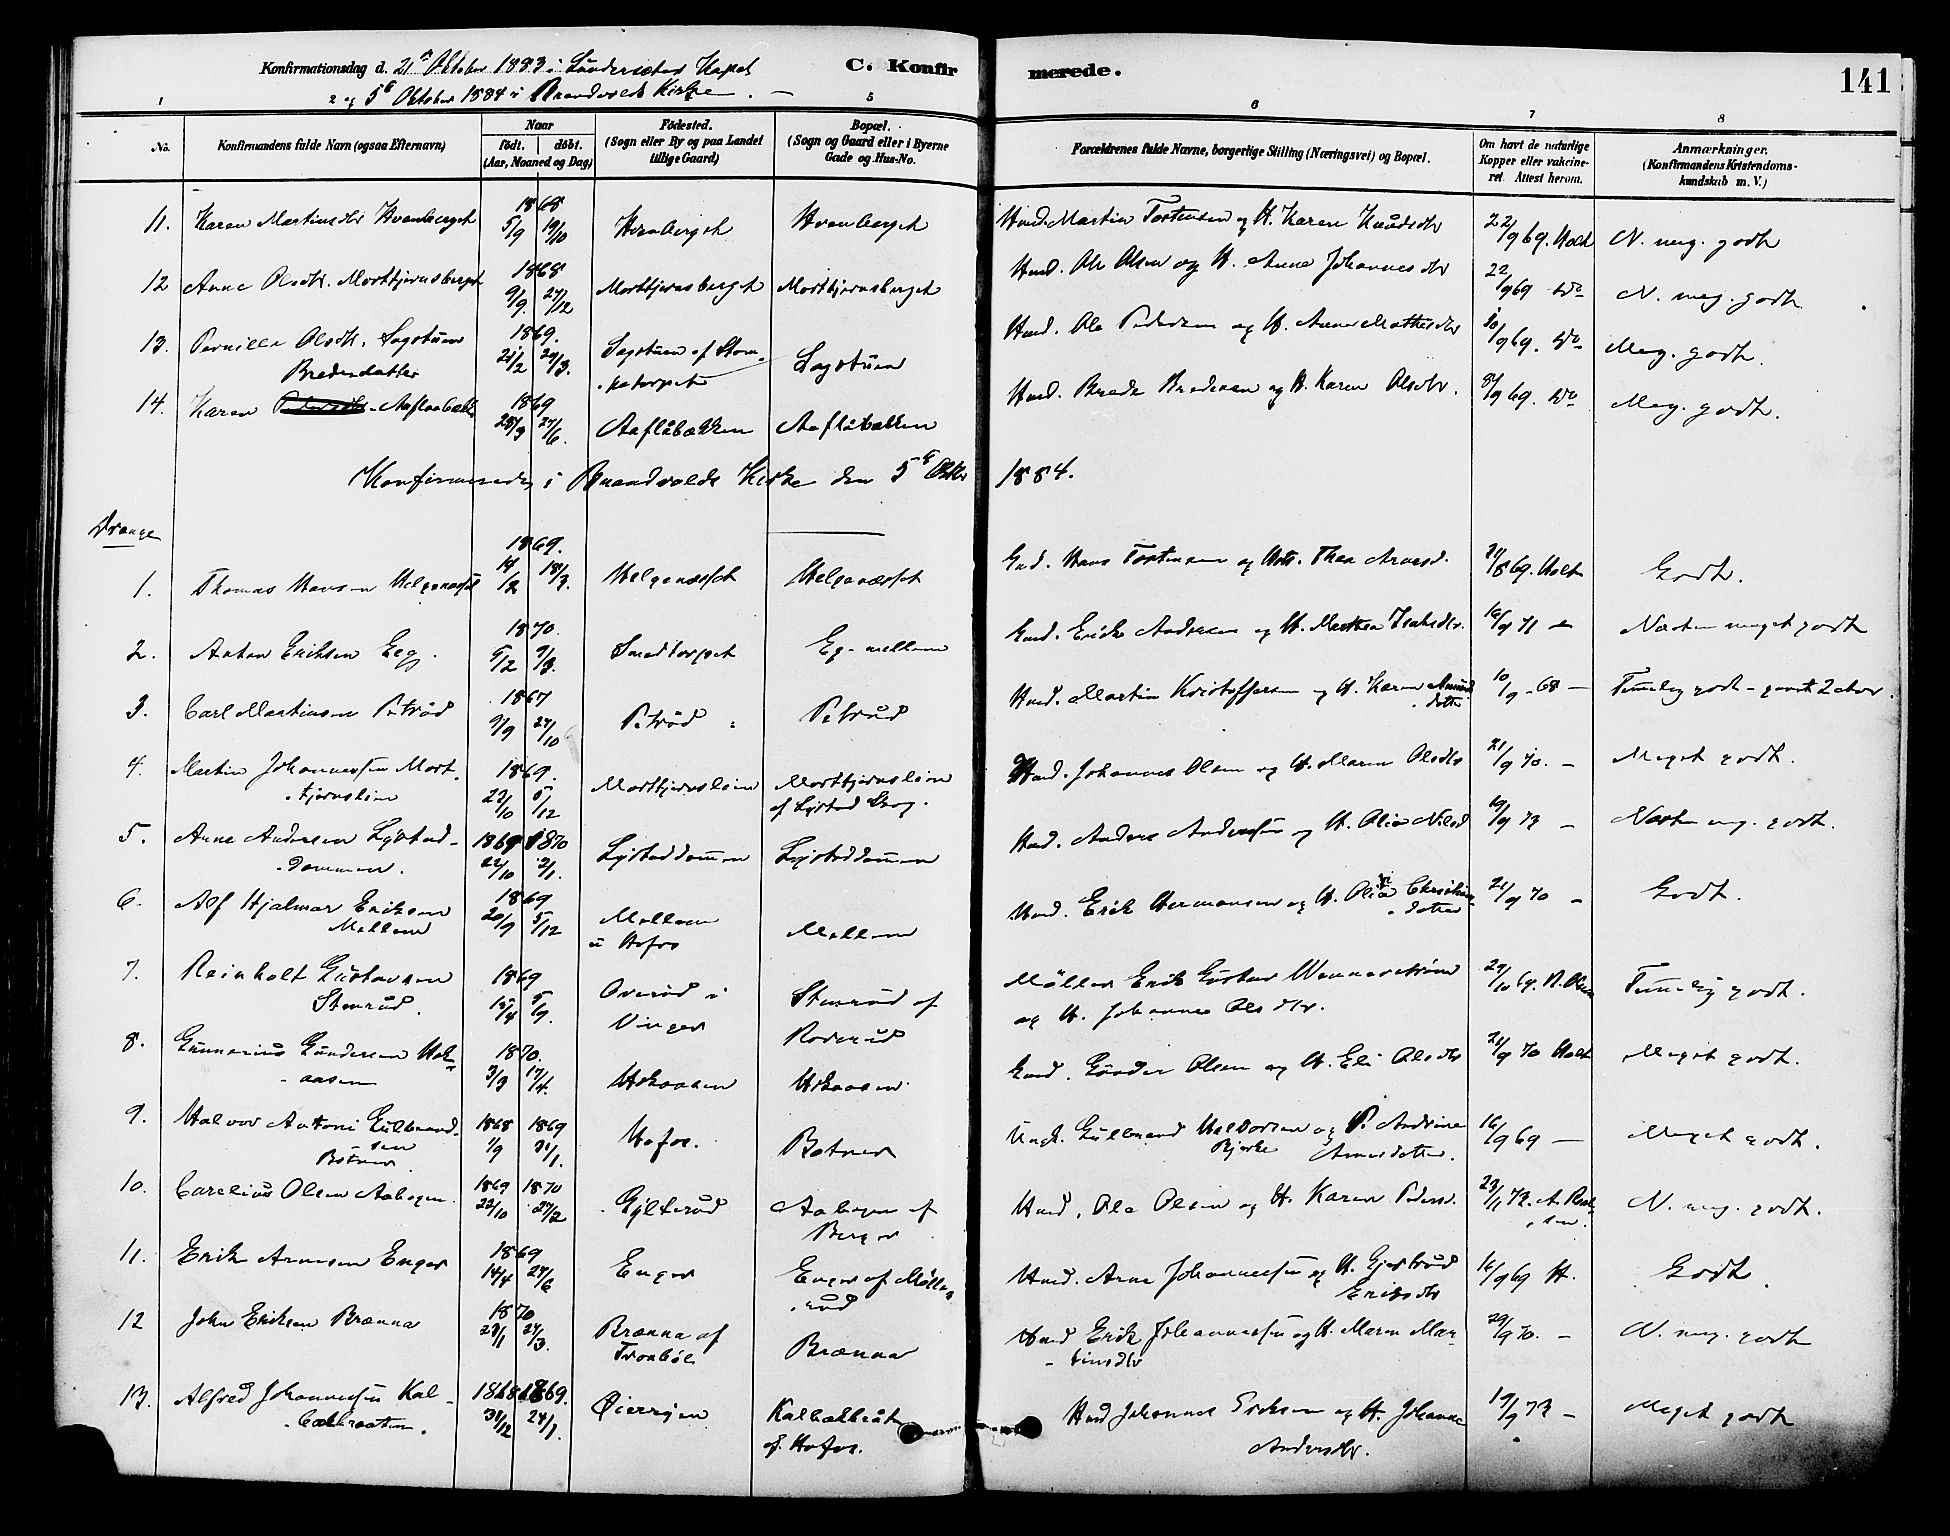 Konfirmationsdag d. 21 Oktober 1883 i Kapel C. Konfirmerede. 141
og 5 Oktober 1884 i Brandvolds Kirke.
1 2 5 6 7 8
No. Konfirmandens fulde Navn (ogsaa Efternavn) Naar født. døbt. (Aar, Maaned og Dag) Fødested. (Sogn eller By og paa Landet tillige Gaard) Bopæl. (Sogn og Gaard eller i Byerne Gade og Hus-No. Forældrenes fulde Navne, borgerlige Stilling (Næringsvei) og Bopæl. Om havt de naturlige Kopper eller vakcineret. Attest herom. Anmærkninger. (Konfirmandens Kristendomskundskab m. V.)
11. Karen Martinsdtr Hvenberget 1868 5/9 19/10 Hvenberget Hvenberget Husm. Martin Torstensen og H. Karen Knudsdtr 22/9 69. Holt N. meg. godt
12 Anne Olsdtr. Mortkjernsberget 1868 9/9. 27/12 Mortkjernsberget Mortkjernsberget Husm. Ole Olsen og H. Anne Johannesdtr 22/9 69 Do N. meg. godt
13. Pernille Olsdtr. Sagstuen 1869. 21/2 29/3. Sagstuen af Sagstuen Husm. Ole Pedersen og H. Anne Mathesdtr 10/9 69. Do Meg. godt.
14. Karen Bredesdatter Aaflaabækk 1869 28/3 27/6. Aaflåbækken Aaflåbækken Husm. Brede Bredesen og H. Karen Olsdtr. 8/9 69. Do Meg. godt.
Konfirmerede i Brandvolds Kirke den 5 Oktbr 1884.
Drænge
1. Thomas Hansen Helgenæsset 1869. 14/2 18/3. Helgenæsset Helgenæsset Gmd. Hans Torstensen og Thea Arnesd. 31/8 69. Holt Godt.
2. Anton Eriksen Eeg. 1870. 5/2 9/3. Smedtorpet Eg-mellem Gmd. Erik Andersen og H. Marthea 16/9 71 Næsten meget godt
3. Carl Martinsen Petrud 1867 9/9 27/10 Petrud Petrud Husm. Martin Kristoffersen og H. Karen Amunddatter 10/9 - 68 - Temmelig godt -
4. Martin Johannessen Mortkjernslien 1869. 23/10 5/12 Mortkjernslien Mortkjernslien af Lystad Skog. Husm. Johannes Olsen og H. Maren Olsdtr 21/9 70. - Meget godt.
5. Arne Andersen Lystaddammen. 1869 1870 22/10 2/1. Lystaddammen Lystaddammen Husm. Anders Andersen og H. Olia Nilsd 19/9 73 - Næsten meg. godt.
6. Alf Hjalmar Eriksen Mellem 1869 20/9 5/12 Mellem u Hofos Mellem Husm. Erik Hermansen og H. Olia Christiansdatter 21/9 70 - Godt.
7. Reinholt Gustavsen Stenrud. 1869 15/4 5/9. Overud i Vinger Stenrud af Roverud Møller Erik Gustav Wennerstrøm og H. Johanne Olsdtr. 29/10 69. Temmelig godt.
8. Gunnerius Gundersen Haksaasen 1870. 3/3 17/4. Gmd. Gunder Olsen og H. Eli Olsdtr 21/9 70 Holt Meget godt.
9. Halvor Antoni Gulbrandsen Botner 1868 1869 1/9 31/1. Hofos. Botner Ungk. Gulbrand Halvorsen Bjerke og P. Andrine Arnesdatter. 16/9 69 - Meget godt.
10. Carelius Olsen Aabogen. 1869 1870 22/10 27/2 Gylterud Aabogen af Berger Husm. Ole Olsen og H. Karen Pedersd. 23/11 73. N. meg. godt.
11. Erik Arnesen Enger 1869 14/4 24/6 Enger Enger af Møllerud Husm. Arne Johannessen og H. Gjertrud Eriksdtr 16/9 69 H. Godt.
12 John Eriksen Brænna 1870 23/1 24/3. Brænna af Tronbøl Brænna Husm Erik Johannessen og H. Maren Martinsdtr 29/9 70. - N. meg. godt
13. Alfred Johannessen Kalbækbraaten. 1868 1869. 31/12 24/1. Øiermoen Kalbækbråt af Hofos. Husm Johannes Eriksen og H. Johanne Andersdtr. 19/9 73 - Meget godt